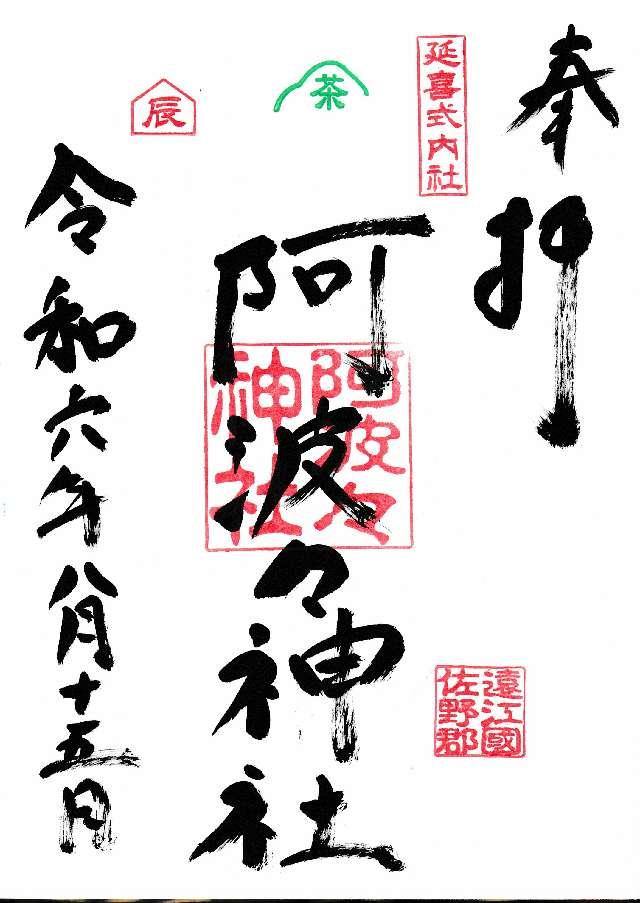 奉拝
延喜式内社
茶
辰
阿波々神社
阿波々
神社
遠江國
佐野郡
令和六年八月十五日